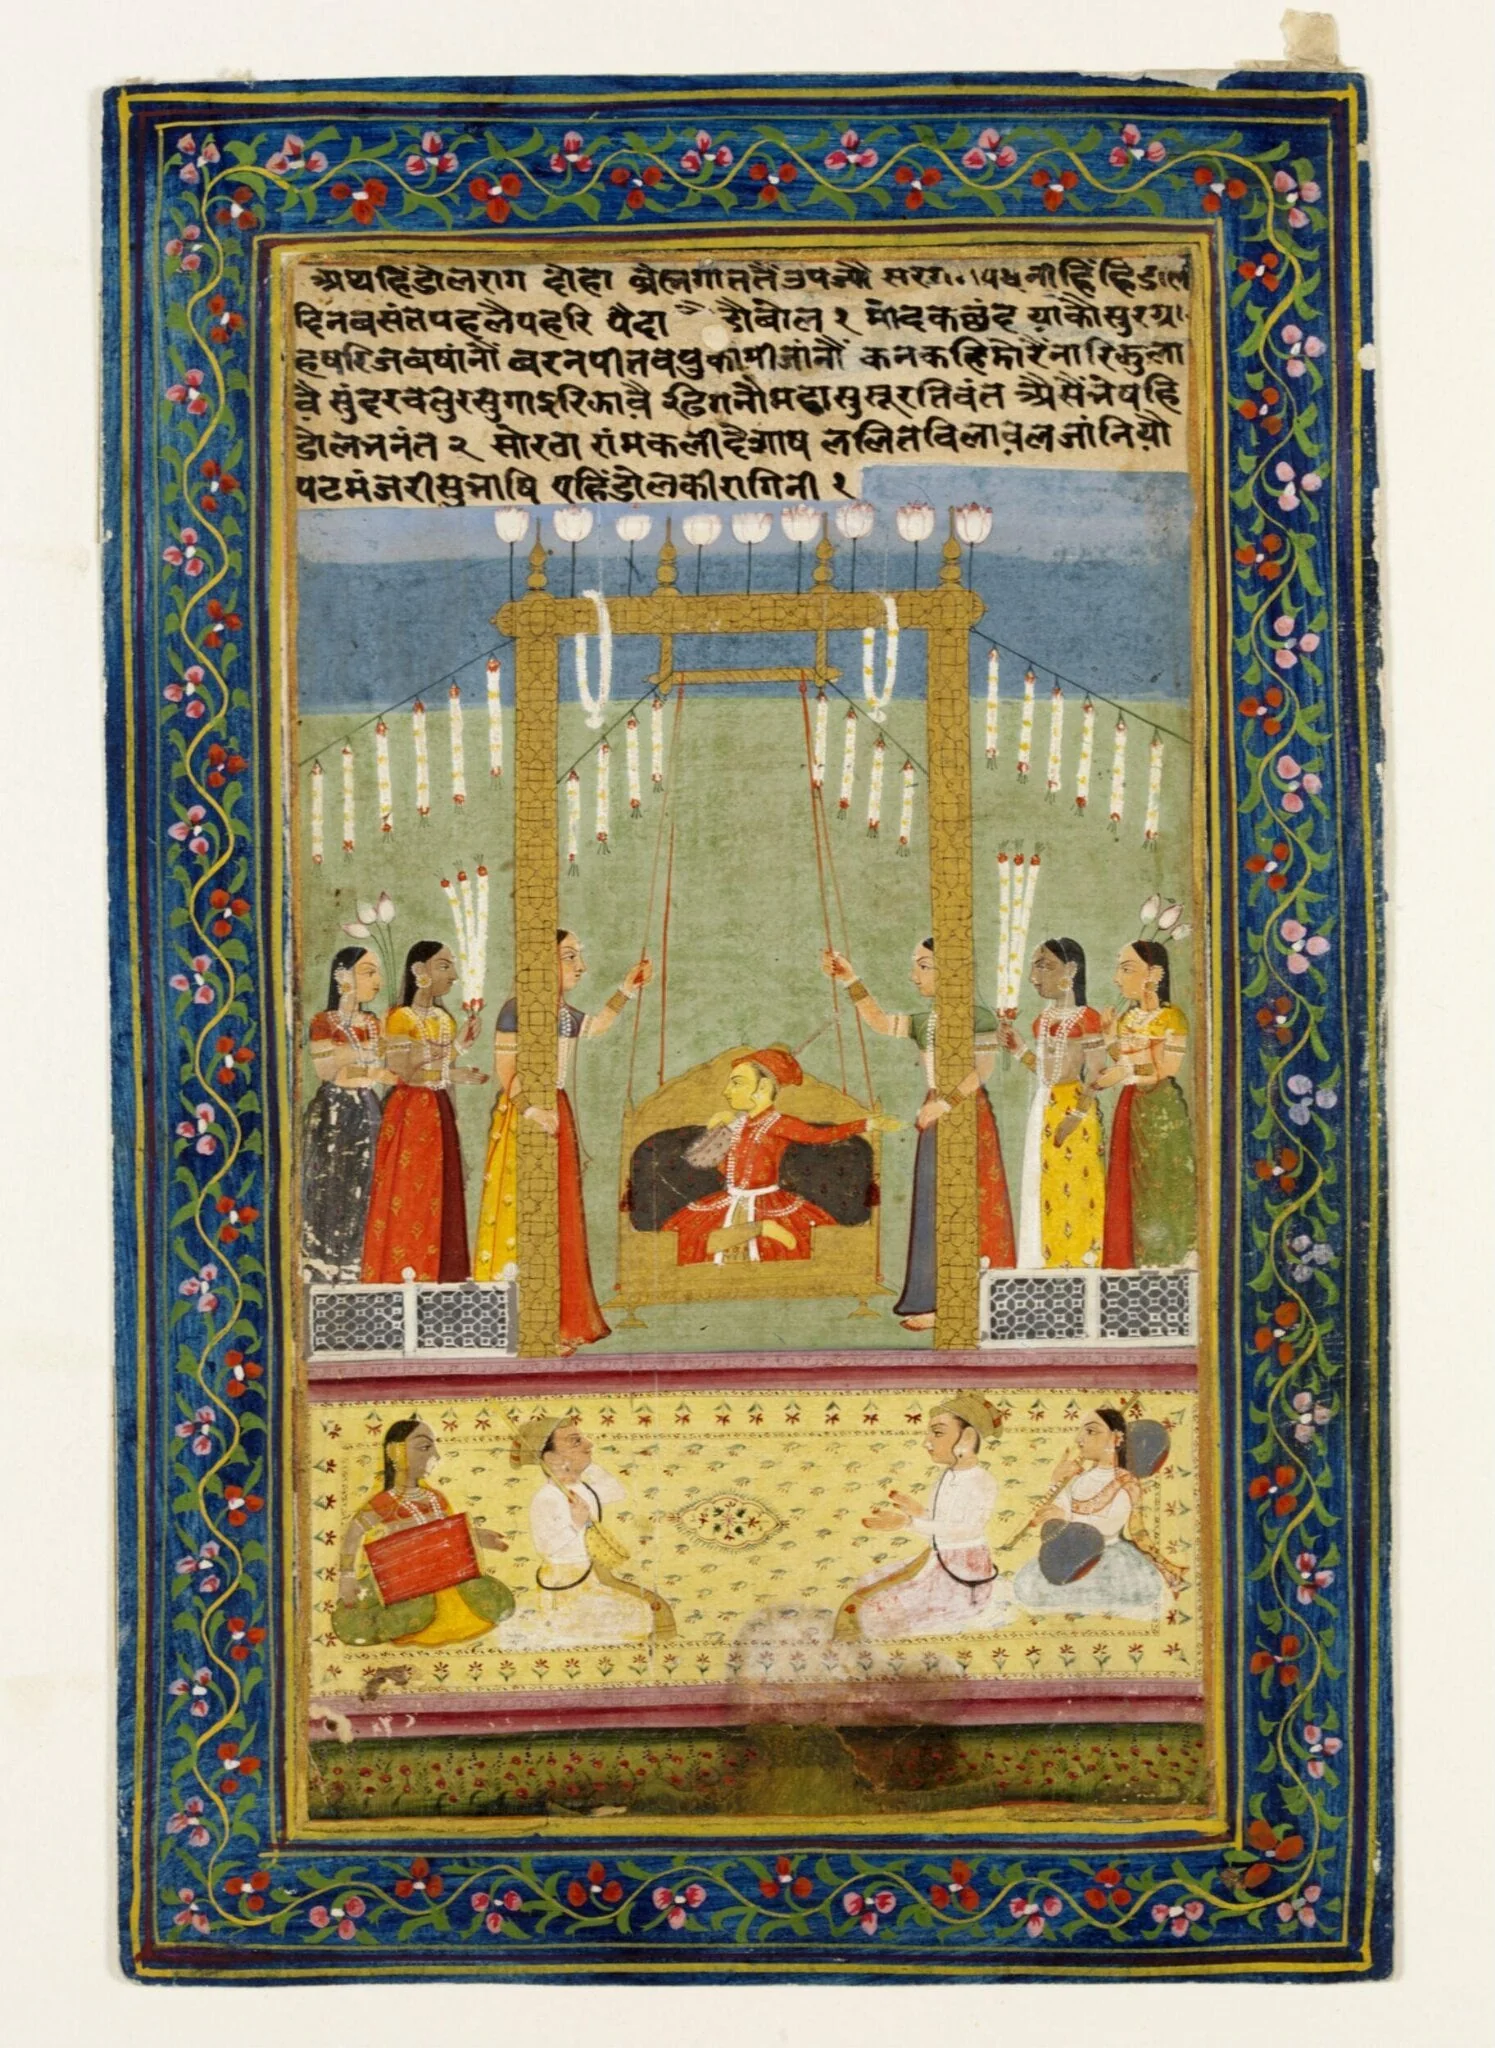 अथ हिंडोलराग दोहा ब्रह्मगाततैं उपज्यौ सरग पधनीहिं हिंडोल
दिन बसंत पहलैपहरि पैदा बोल १ मोदकछंद याकौ सुरग्र
हषरिजबषांनौं बरनपीतबपुकामीजांनौं कनकहिंडोरैंनारिझुला
वै सुंदरचतुरसुगाइरिझावै ढिगनौ महासुसूरतिवंत अैसैं भेषहिं
डोल भनंत २ सोरठा रांमकलीदैआष ललितबिलावलजांनियौ
पटमंजरीसुभाषि एहिंडोलकीरागिनी १